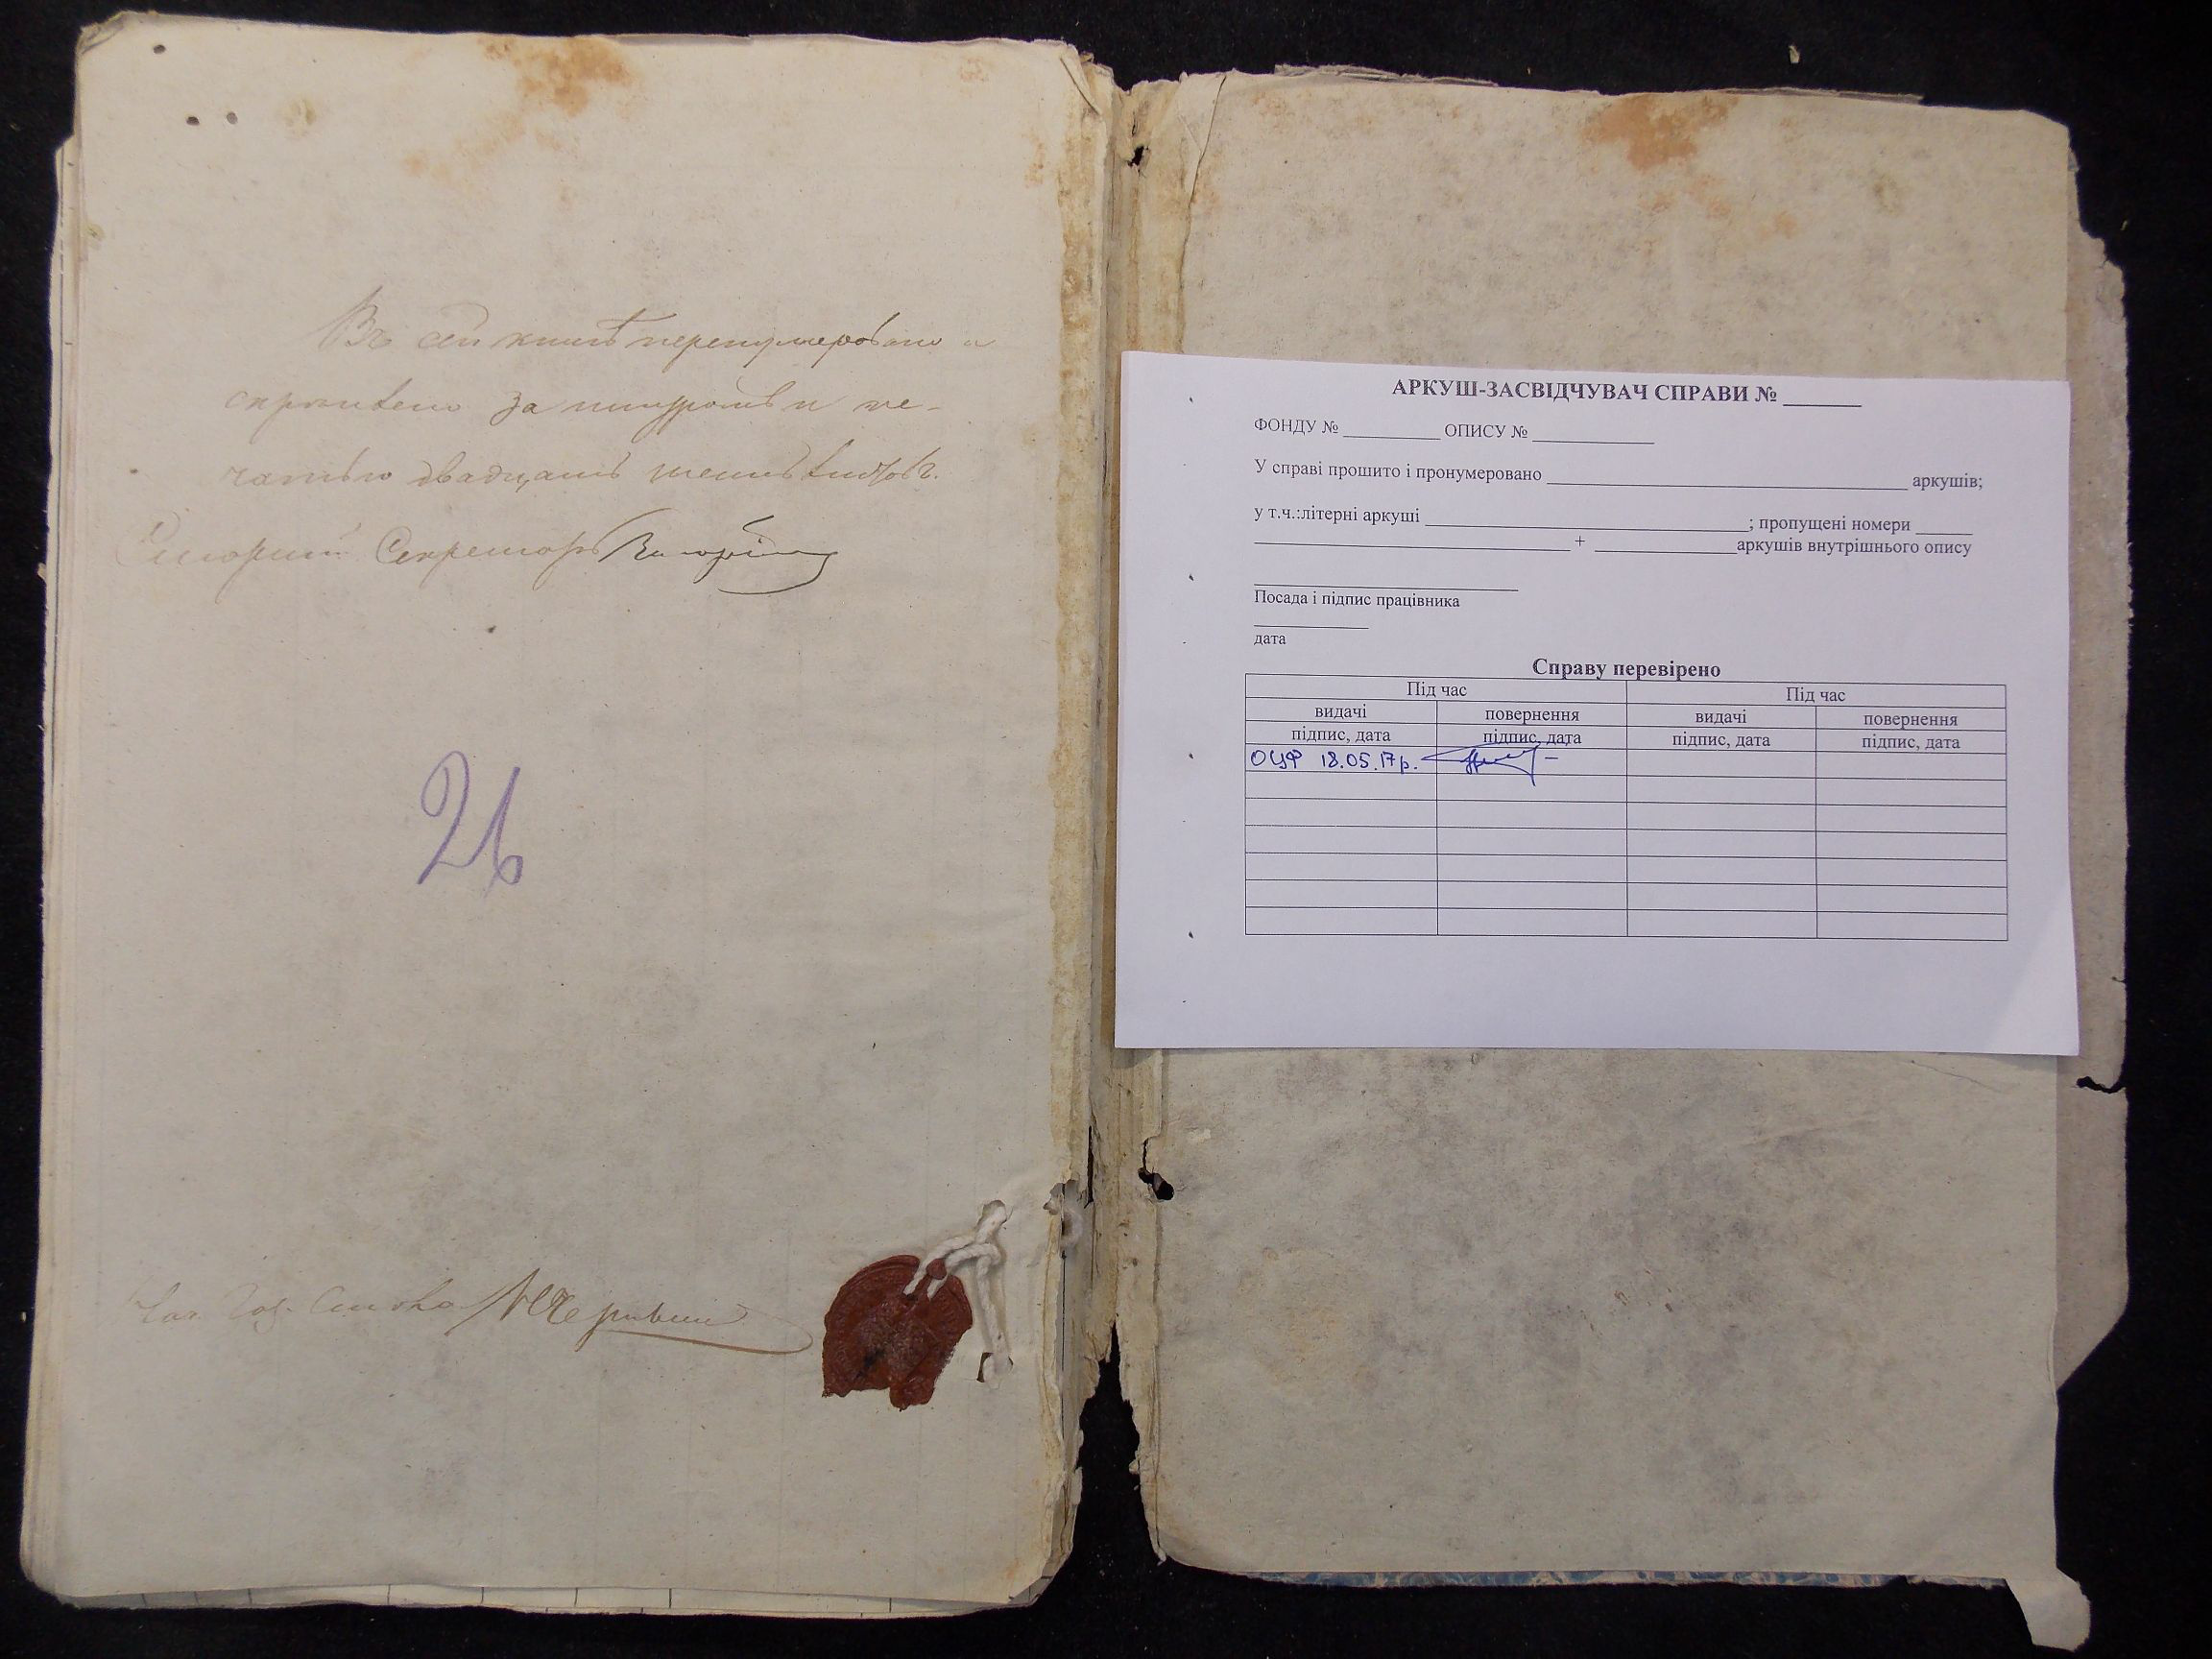 Въ сей книгѣ перенумеровано и
скрѣплено за шнуромъ и пе-
чатью двадцать шесть листовъ.
Секретарь
26
АРКУШ-ЗАСВІДЧУВАЧ СПРАВИ № _______
ФОНДУ № __________ ОПИСУ № ____________
У справі прошито і пронумеровано ____________________________________ аркушів;
у т.ч.:літерні аркуші ________________________________; пропущені номери ______
________________________________ + ______________аркушів внутрішнього опису
__________________________
Посада і підпис працівника
____________
дата
Справу перевірено
Під час Під час
видачі повернення видачі повернення
підпис, дата підпис, дата підпис, дата підпис, дата
ОЦФ 18.05.17р.